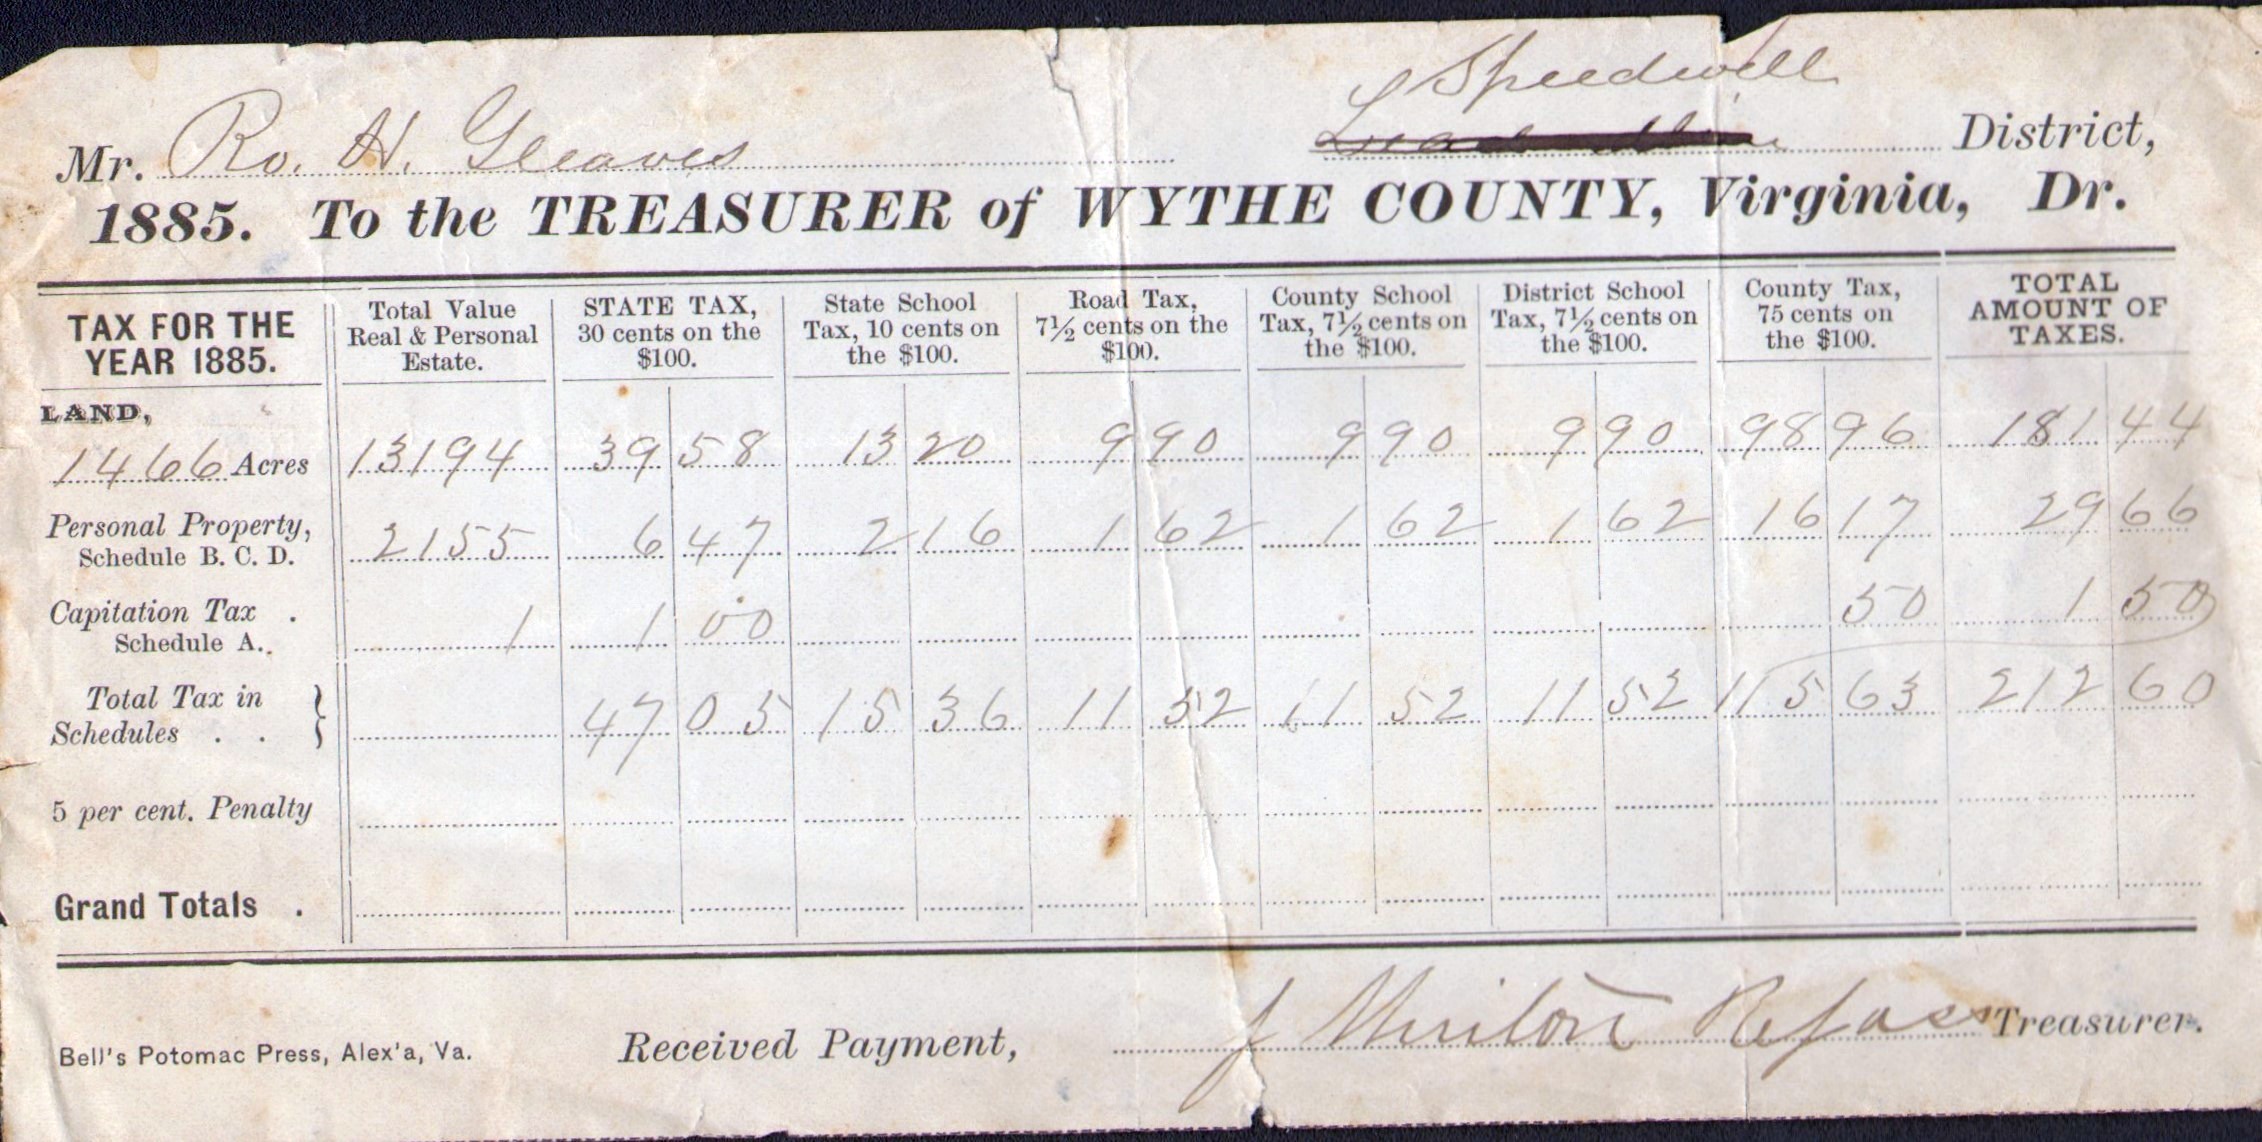 Speedwell
Mr. Ro. H. Gleaves District,
1885. To the TREASURER of WYTHE COUNTY, Virginia, Dr.
TAX FOR THE YEAR 1885. Total Value Real & Personal Estate. STATE TAX, 30 cents on the $100. State School Tax, 10 cents on the $100. Road Tax, 7½ cents on the $100. County School Tax, 7½ cents on the $100. District School Tax, 7½ cents on the $100. County Tax, 75 cents on the $100. TOTAL AMOUNT OF TAXES.
LAND,
1466 Acres 13194 39 58 13 20 9 90 9 90 9 90 98 96 181 44
Personal Property, 2155 6 47 2 16 1 62 1 62 1 62 16 17 29 66
Schedule B. C. D.
Capitation Tax . 1 1 00 50 1 50
Schedule A..
Total Tax in
Schedules . . } 47 05 15 36 11 52 11 52 11 52 115 63 212 60
5 per cent. Penalty
Grand Totals .
Bell's Potomac Press, Alex'a, Va. Received Payment, J Meriton Refass Treasurer.